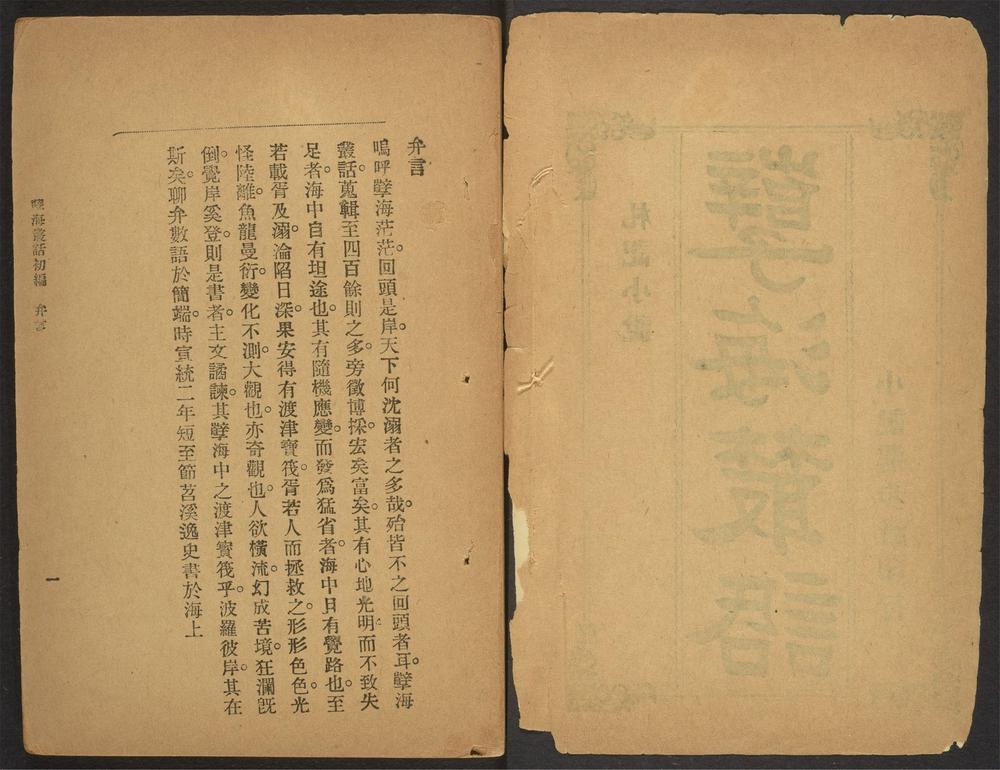 孽海叢話
札記小說
弁言
嗚呼孽海茫茫。回頭是岸。天下何沈溺者之多哉。殆皆不之回頭者耳。孽海
叢話。蒐輯至四百餘則之多。旁徵博採。宏矣富矣。其有心地光明而不致失
足者。海中自有坦途也。其有隨機應變。而發爲猛省者。海中且有覺路也。至
若載胥及溺。淪陷日深。果安得有渡津寶筏。胥若人而拯救之。形形色色。光
怪陸離。魚龍曼衍。變化不測。大觀也。亦奇觀也。人欲橫流。幻成苦境。狂瀾旣
倒。覺岸奚登。則是書者。主文譎諫。其孽海中之渡津寶筏乎。波羅彼岸。其在
斯矣。聊弁數語於簡端。時宣統二年短至節苕溪逸史書於海上
孽海叢話初編　弁言
一